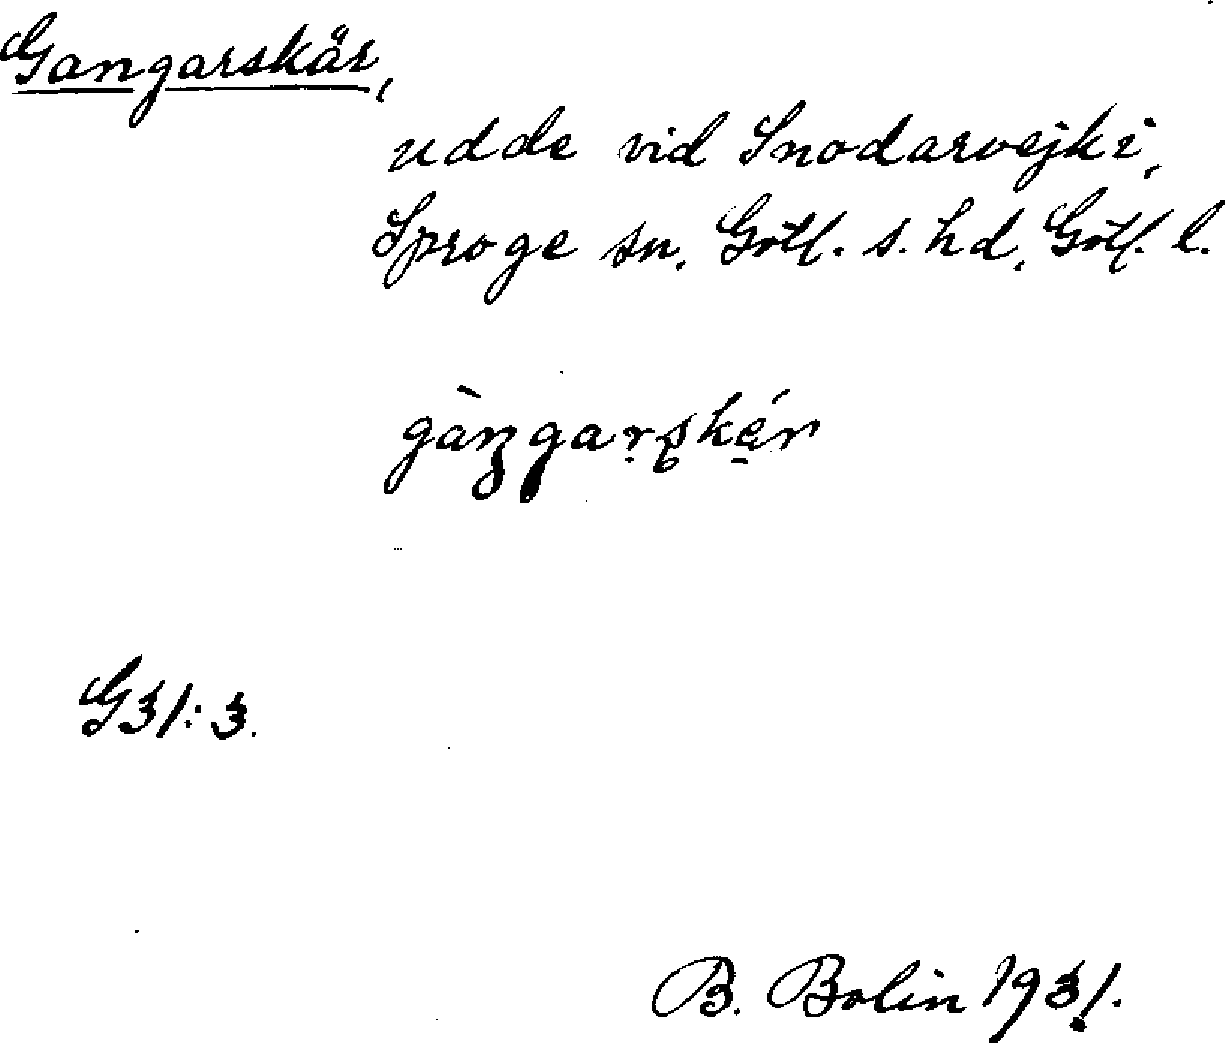 Gangarskär,
udde vid Snodarvejki,
Sproge sn. Gotl. s. hd, Gotl. l.
gàŋgarskér
G31:3.
B. Bolin 1931.